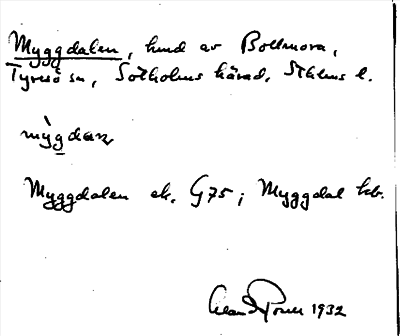 Myggdalen, hmd av Bollmora,
Tyresö sn, Sotholms härad, Sthlms l.
Myggdalen ek. G75; Myggdal kb.
1932